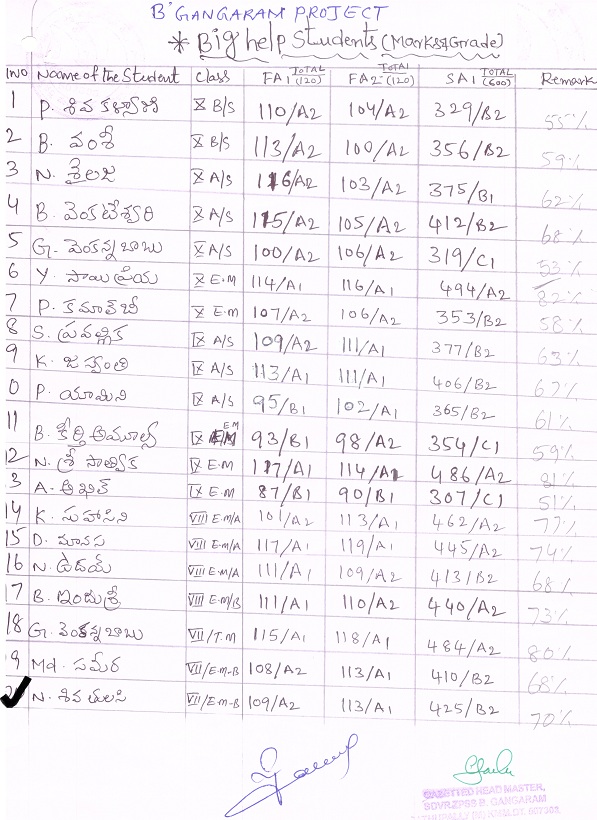 B' GANGARAM PROJECT
* Big help Students (Marks&Grade)
SNO Name of the Student Class FA1 TOTAL (120) FA2 TOTAL (120) SA1 TOTAL (600) Remark
1 P. శివ కళ్యాణి X B/S 110/A2 104/A2 329/B2 55%
2 B. వంశీ X B/S 113/A2 100/A2 356/B2 59%
3 N. శైలజ X A/S 116/A2 103/A2 375/B1 62%
4 B. వెంకటేశ్వరి X A/S 115/A2 105/A2 412/B2 68%
5 G. వెంకన్న బాబు X A/S 100/A2 106/A2 319/C1 53%
6 Y. సాయి ప్రియ X E.M 114/A1 116/A1 494/A2 82%
7 P. కమాల్‌బీ X E.M 107/A2 106/A2 353/B2 58%
8 S. ప్రవల్లిక IX A/S 109/A2 111/A1 377/B2 63%
9 K. జస్వంతి IX A/S 113/A1 111/A1 406/B2 67%
0 P. యామిని IX A/S 95/B1 102/A1 365/B2 61%
11 B. కీర్తి అమూల్య IX EM 93/B1 98/A2 354/C1 59%
12 N. శ్రీ సాత్విక IX E.M 117/A1 114/A1 486/A2 81%
3 A. అఖిల్ IX E.M 87/B1 90/B1 307/C1 51%
14 K. సుహాసిని VIII E.M/A 101/A2 113/A1 462/A2 77%
15 D. మానస VIII E.M/A 117/A1 119/A1 445/A2 74%
16 N. ఉదయ్ VIII E.M/A 111/A1 109/A2 413/B2 68%
17 B. ఇందుశ్రీ VIII E.M/B 111/A1 110/A2 440/A2 73%
18 G. వెంకన్నబాబు VII/T.M 115/A1 118/A1 484/A2 80%
19 Md. సమీర VII/E.M-B 108/A2 113/A1 410/B2 68%
N. శివ తులసి VII/E.M-B 109/A2 113/A1 425/B2 70%
GAZETTED HEAD MASTER,
B. GANGARAM